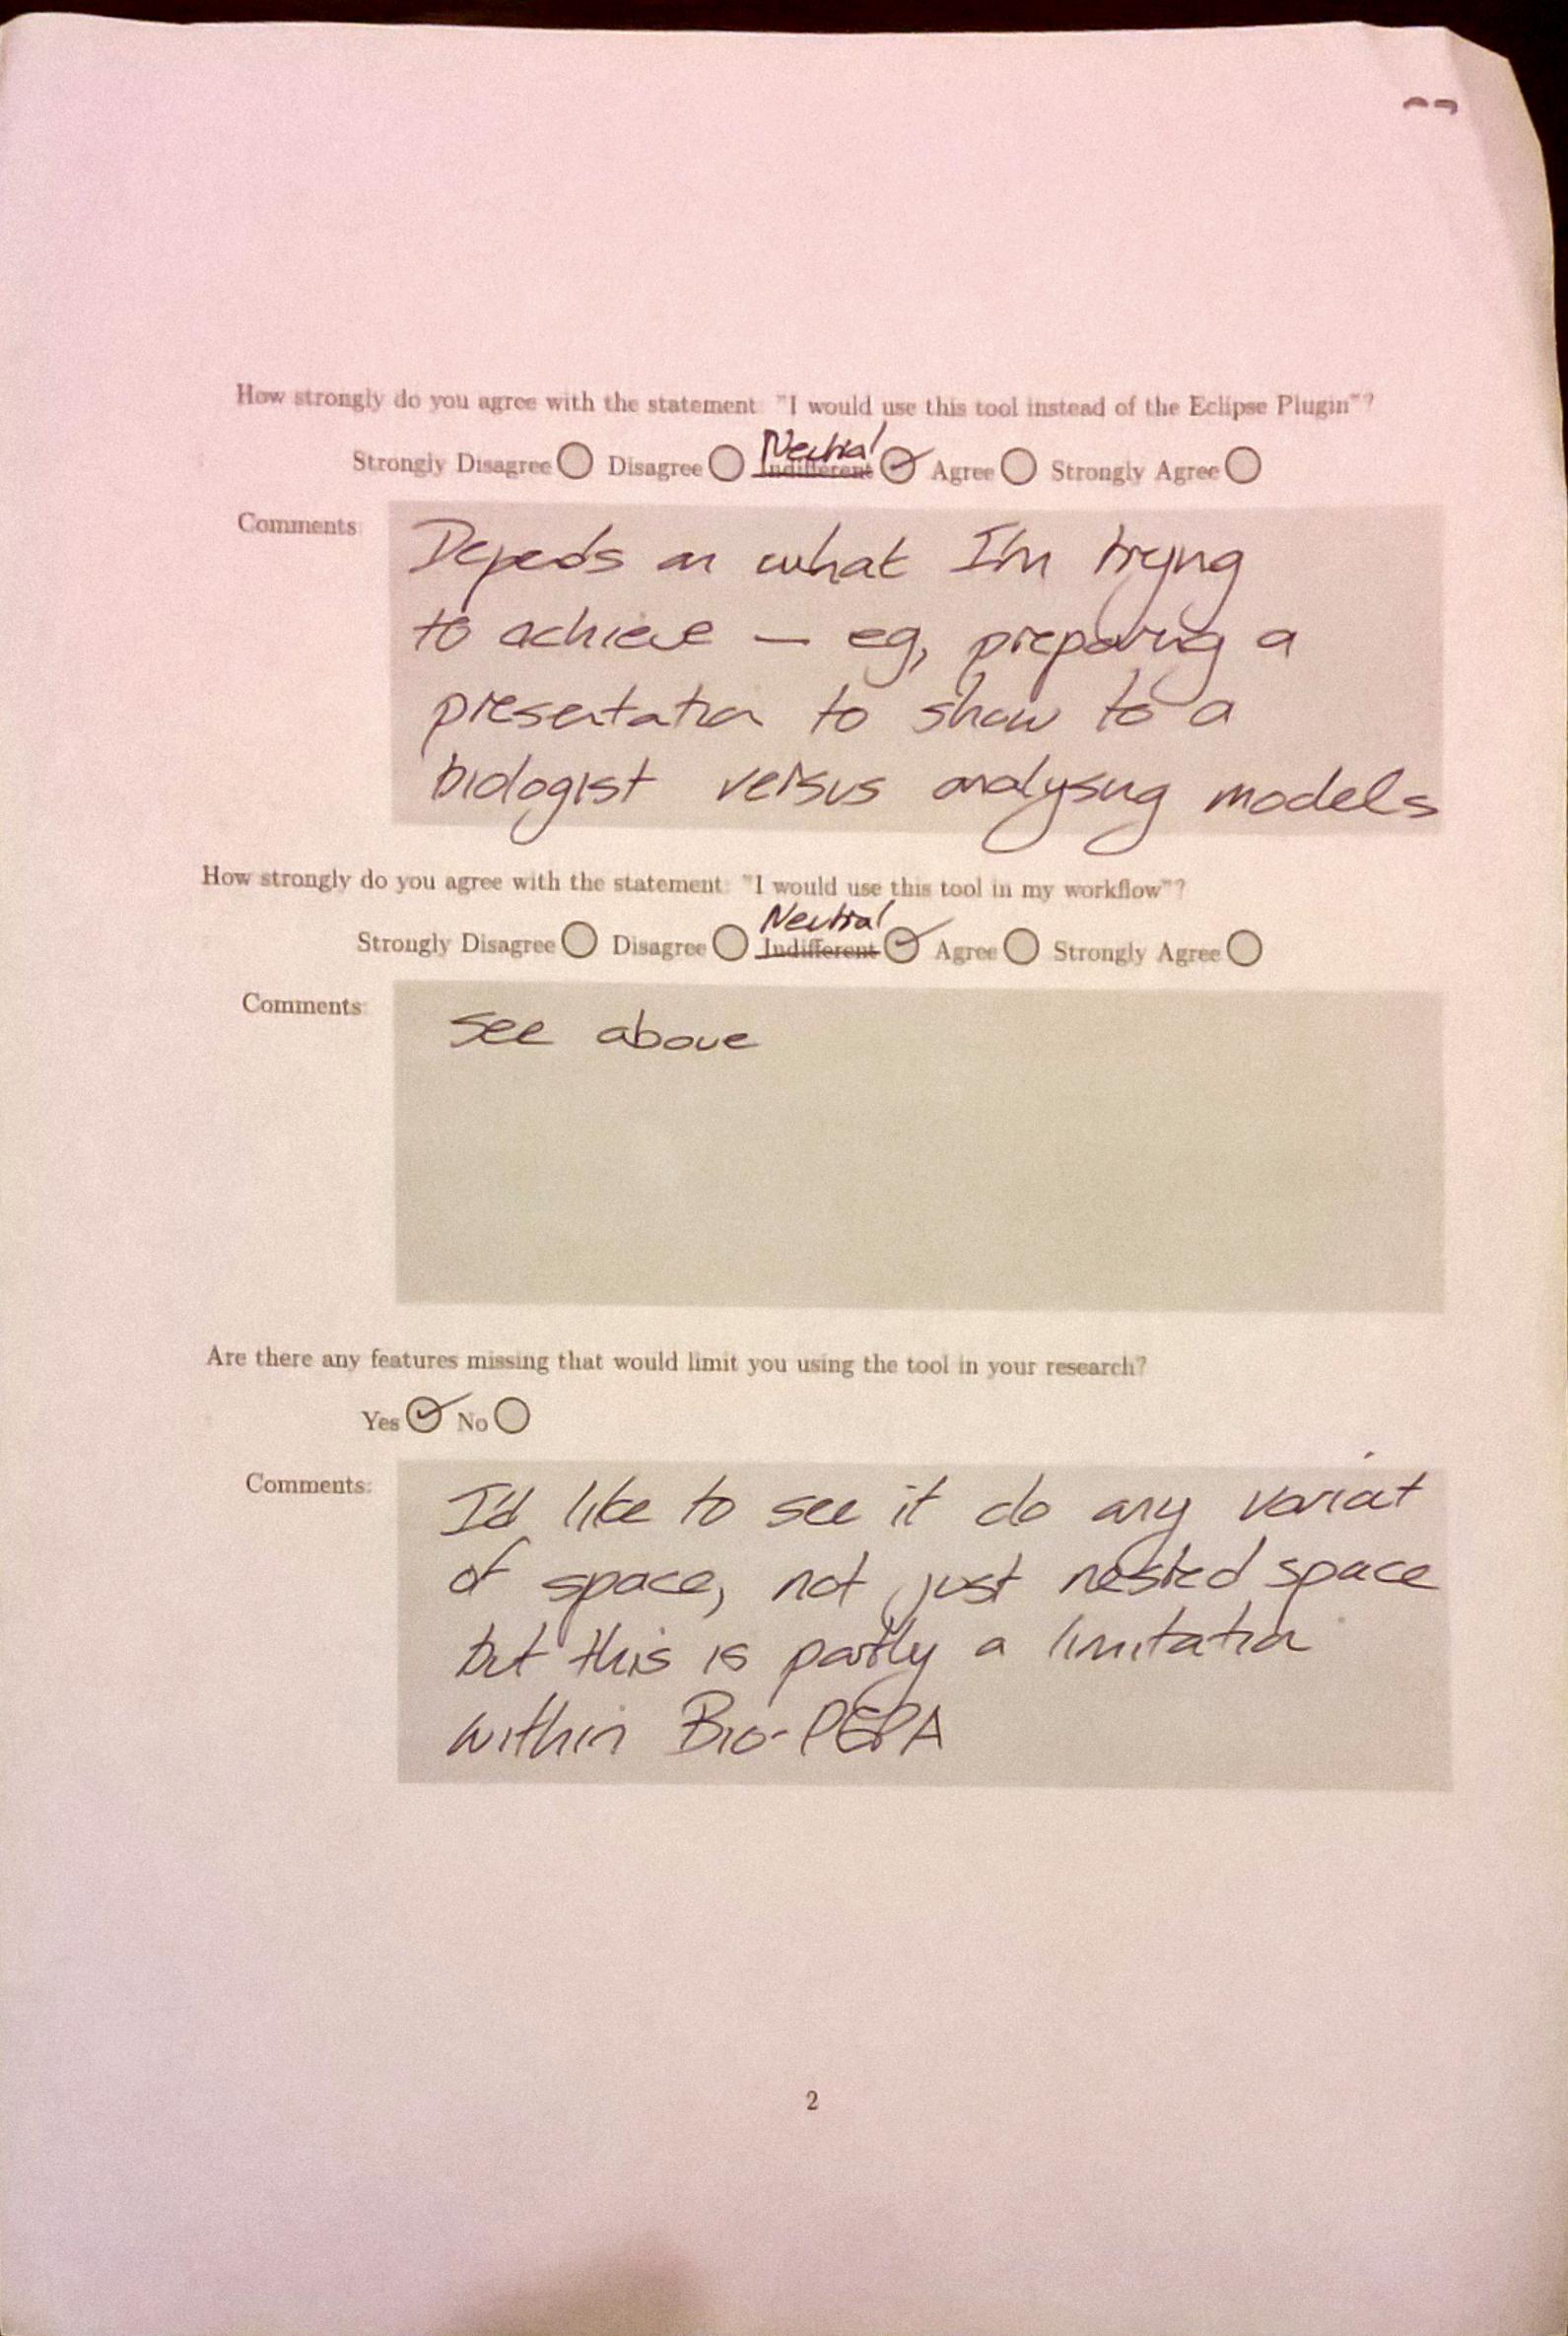 How strongly do you agree with the statement: "I would use this tool instead of the Eclipse Plugin"?
Neutral
Strongly Disagree Disagree Indifferent Agree Strongly Agree
Comments:
Depends on what I'm trying
to achieve — eg, preparing a
presentation to show to a
biologist versus analysing models
How strongly do you agree with the statement: "I would use this tool in my workflow"?
Neutral
Strongly Disagree Disagree Indifferent Agree Strongly Agree
Comments:
see above
Are there any features missing that would limit you using the tool in your research?
Yes No
Comments:
I'd like to see it do any variant
of space, not just nested space
but this is partly a limitation
within Bio-PEPA
2